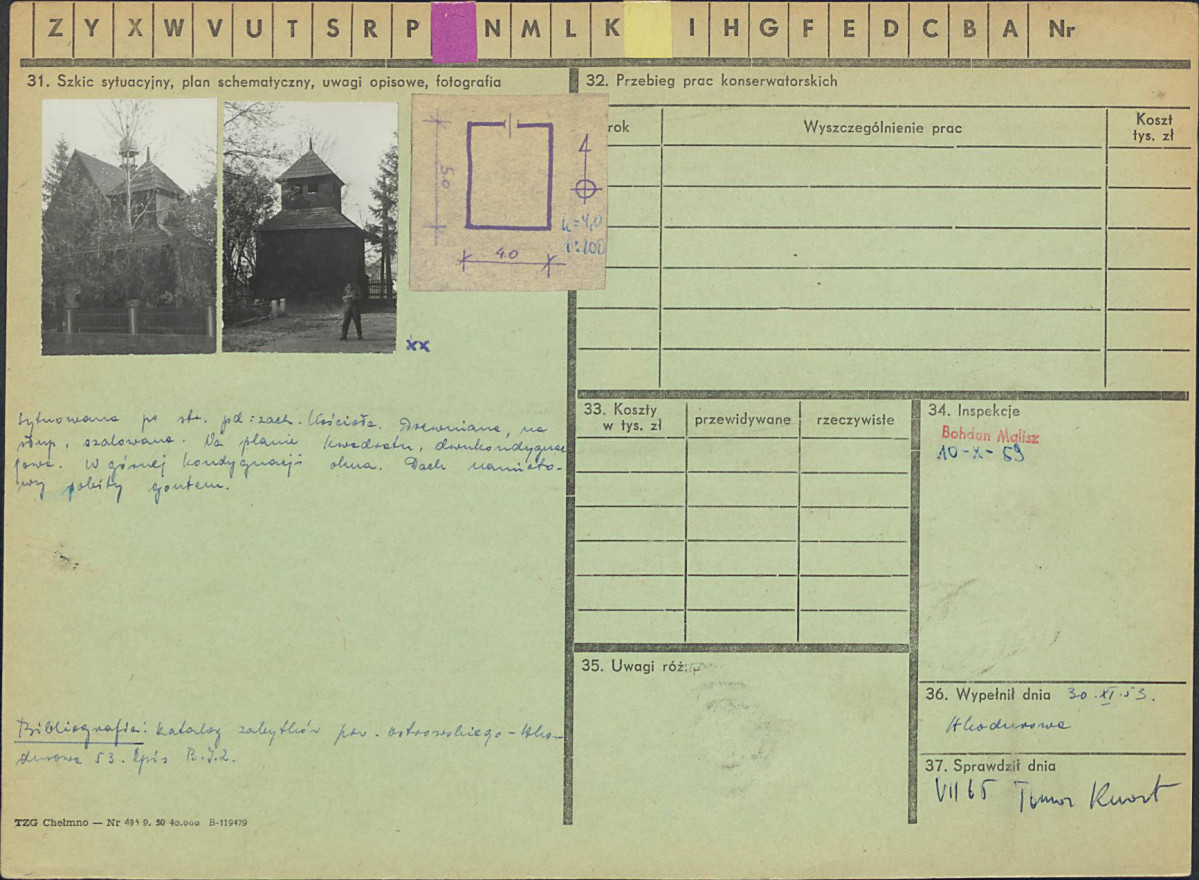 Z Y X W V U T S R P N M L K I H G F E D C B A Nr
31. Szkic sytuacyjny, plan schematyczny, uwagi opisowe, fotografia
5.0
4.0
h=4,0
1:100
xx
Sytuowana po str. pd:zach. Kościoła. Drewniana, na
słup, szalowana. Na planie kwadratu, dwukondygnac
jowa. W górnej kondygnacji okna. Dach namioto-
wy pobity gontem.
Bibliografia: Katalog zabytków pow. ostrowskiego -
53. Spis B.I.2.
TZG Chełmno — Nr 495 9. 50 40.000 B-119479
32. Przebieg prac konserwatorskich
rok
Wyszczególnienie prac
Koszt
tys. zł
33. Koszty
w tys. zł
przewidywane
rzeczywiste
34. Inspekcje
Bohdan Malisz
10-X-69
35. Uwagi różne
36. Wypełnił dnia 30.XI.53.
37. Sprawdził dnia
VII 65